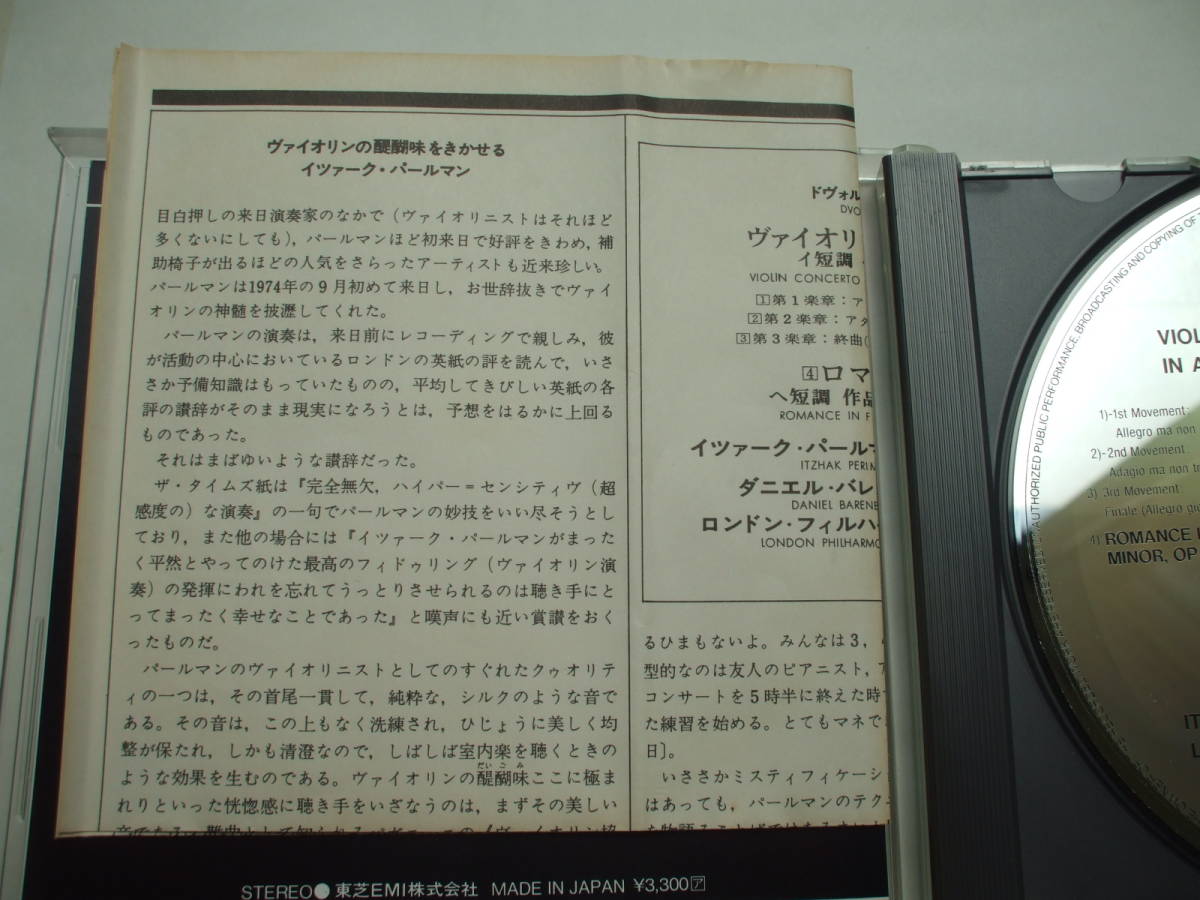 ヴァイオリンの醍醐味をきかせる
イツァーク・パールマン
目白押しの来日演奏家のなかで（ヴァイオリニストはそれほど
多くないにしても），パールマンほど初来日で好評をきわめ，補
助椅子が出るほどの人気をさらったアーティストも近来珍しい。
パールマンは1974年の9月初めて来日し，お世辞抜きでヴァイ
オリンの神髄を披瀝してくれた。
パールマンの演奏は，来日前にレコーディングで親しみ，彼
が活動の中心においているロンドンの英紙の評を読んで，いさ
さか予備知識はもっていたものの，平均してきびしい英紙の各
評の讃辞がそのまま現実になろうとは，予想をはるかに上回る
ものであった。
それはまばゆいような讃辞だった。
ザ・タイムズ紙は『完全無欠，ハイパー＝センシティヴ（超
感度の）な演奏』の一句でパールマンの妙技をいい尽そうとし
ており，また他の場合には『イツァーク・パールマンがまった
く平然とやってのけた最高のフィドゥリング（ヴァイオリン演
奏）の発揮にわれを忘れてうっとりさせられるのは聴き手にと
ってまったく幸せなことであった』と嘆声にも近い賞讃をおく
ったものだ。
パールマンのヴァイオリニストとしてのすぐれたクゥオリテ
ィの一つは，その首尾一貫して，純粋な，シルクのような音で
ある。その音は，この上もなく洗練され，ひじょうに美しく均
整が保たれ，しかも清澄なので，しばしば室内楽を聴くときの
ような効果を生むのである。ヴァイオリンの醍醐味ここに極ま
れりといった恍惚感に聴き手をいざなうのは，まずその美しい
ドヴォル
DVO
ヴァイオリ
イ短調
VIOLIN CONCERTO
1第1楽章：ア
2第2楽章：アダ
3第3楽章：終曲(
4ロマ
ヘ短調 作品
ROMANCE IN F
イツァーク・パールマ
ITZHAK PERLM
ダニエル・バレ
DANIEL BARENB
ロンドン・フィルハ
LONDON PHILHARM
るひまもないよ。みんなは3，
型的なのは友人のピアニスト，
コンサートを5時半に終えた時
た練習を始める。とてもマネで
日］。
いささかミスティフィケーショ
はあっても，パールマンのテクニ
STEREO● 東芝EMI株式会社 MADE IN JAPAN ¥3,300ア
AUTHORIZED PUBLIC PERFORMANCE, BROADCASTING AND COPYING OF
VIOL
IN A
1)-1st Movement:
Allegro ma non
2)-2nd Movement:
Adagio ma non tr
3) 3rd Movement:
Finale (Allegro gio
4) ROMANCE I
MINOR, OP
IT
L